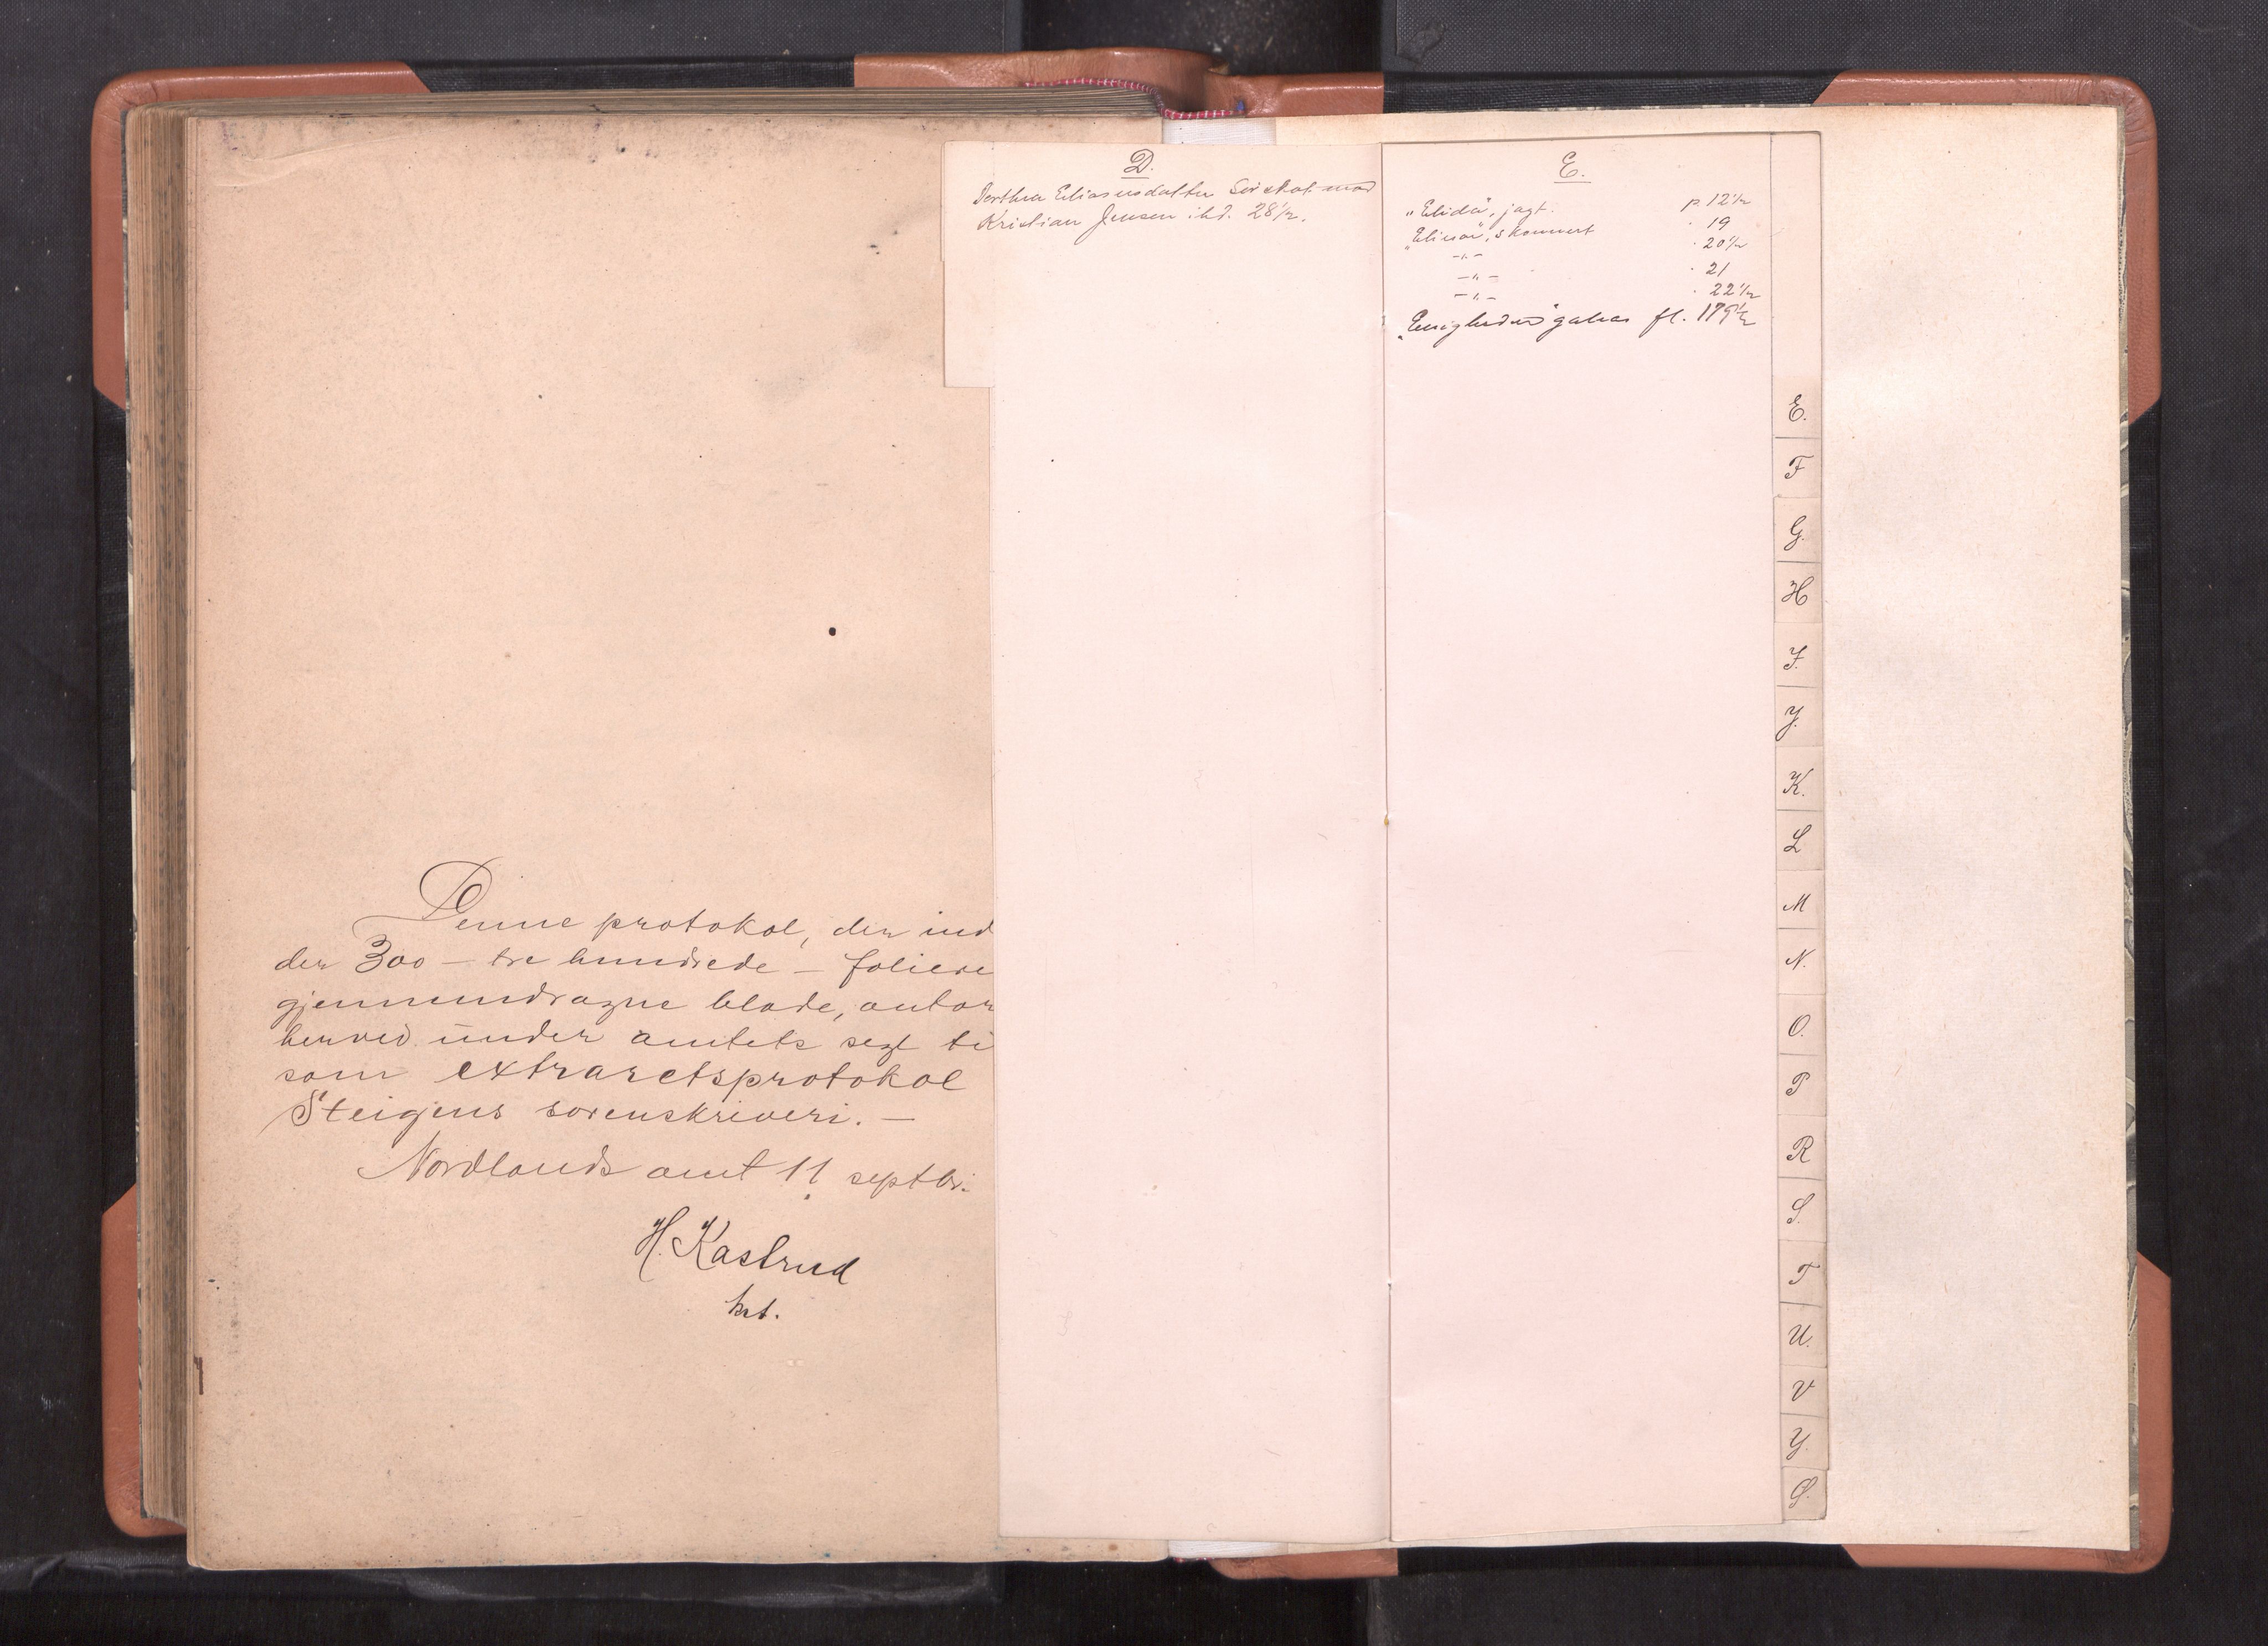 Denne protokol, der ind
der 300 – tre hundrede – foliere
gjennemdragne blade, autor
herved under amtets segl ti
som extraretsprotokol
Steigens sorenskriveri. –
Nordlands amt 11 septbr.
H. Kastrud
kst.
D.
Dorthea Eliasensdatter Seviskot mod
Kristian Jensen ihd. 28 1/2.
E.
"Elida", jagt. p. 12 1/2
"Elieser", skonnert · 19
–„– · 20 1/2
–„– · 21
–„– · 22 1/2
"Enigheden" galeas fl. 179 1/2
E.
F
G.
H
I.
J.
K.
L
M
N.
O.
P
R
S.
T
U.
V
Y.
Ø.